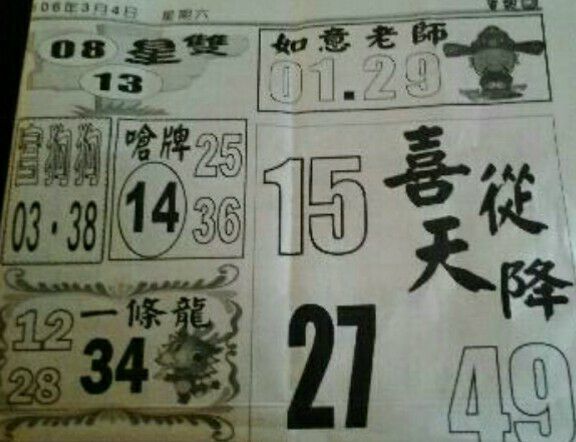 106年3月4日 星期六
08 雙星
13
如意老師
01.29
狗狗
03·38
嗆牌
14
25
36
喜從
天降
15
27
49
一條龍
12
34
28